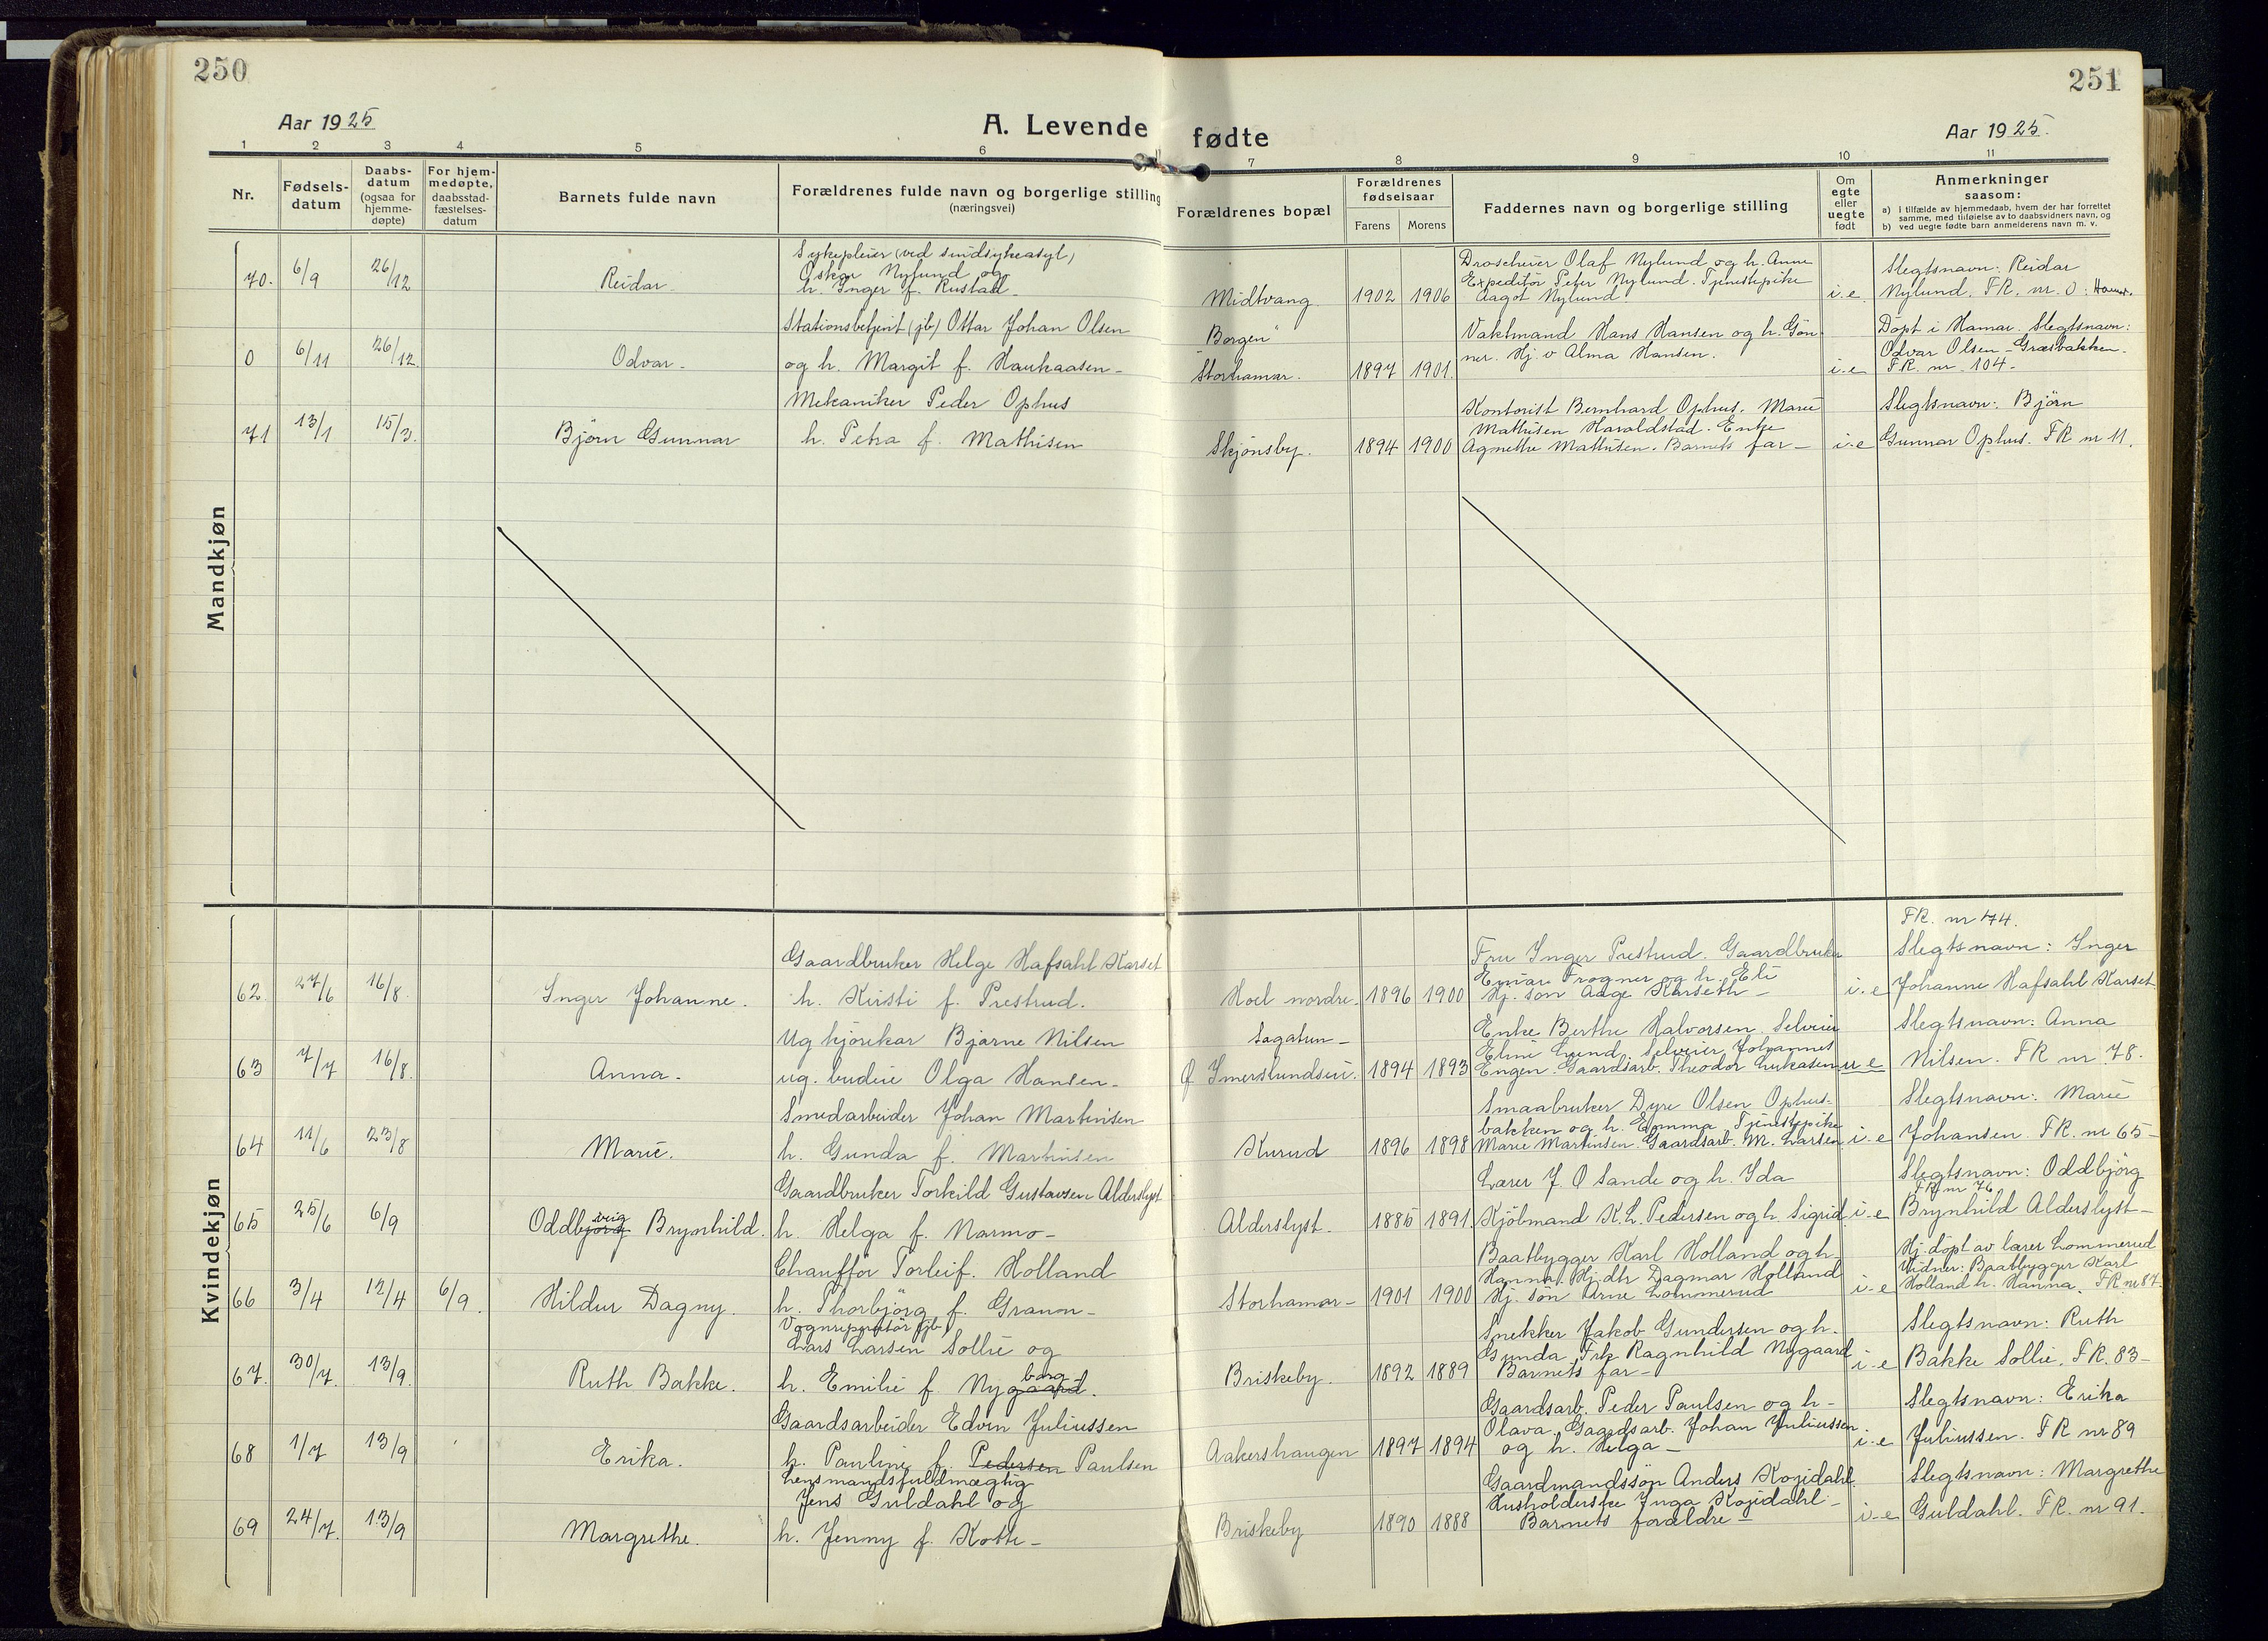 250
251
Aar 1925
A. Levende fødte
Aar 1925.
1 2 3 4 5 6 7 8 9 10 11
Nr.
Fødsels-
datum
Daabs-
datum
(ogsaa for
hjemme-
døpte)
For hjem-
medøpte,
daabsstad-
fæstelses-
datum
Barnets fulde navn
Forældrenes fulde navn og borgerlige stilling
(næringsvei)
Forældrenes bopæl
Forældrenes
fødselsaar
Farens Morens
Faddernes navn og borgerlige stilling
Om
egte
eller
uegte
født
Anmerkninger
saasom:
a) i tilfælde av hjemmedaab, hvem der har forrettet
samme, med tilføielse av to daabsvidners navn, og
b) ved uegte fødte barn anmelderens navn m. v.
Mandkjøn
70. 6/9 26/12 Reidar
Sykepleier (ved sindsykeasyl)
Oskar Nylund og
h. Inger f. Rustad
Midtvang 1902 1906
Droscheeier Olaf Nylund og h. Anne
Expeditör Peter Nylund. Tjenestepike
Aagot Nylund
i.e.
Slegtsnavn: Reidar
Nylund. FR. nr. 0. Hamar.
0 6/11 26/12 Odvar
Stationsbetjent (jb) Ottar Johan Olsen
og h. Margit f. Haukaasen
"Borgen"
Storhamar. 1897 1901.
Vaktmand Hans Hansen og h. Gön-
ner. Hj. v Alma Hansen.
i.e
Döpt i Hamar. Slegtsnavn:
Odvar Olsen-Græsbakken.
F.R. nr. 104
71 13/1 15/3. Björn Gunnar
Mekaniker Peder Ophus
h. Petra f. Mathisen
Skjönsby. 1894 1900
Kontorist Bernhard Ophus. Marie
Mathisen Haroldstad. Enke
Agnethe Mathisen. Barnets far
i.e
Slegtsnavn: Björn
Gunnar Ophus. FR nr 11.
Kvindekjøn
62. 27/6 16/8. Inger Johanne.
Gaardbruker Helge Hafsahl Karset
h. Kirsti f. Prestrud.
Hoel nordre. 1896 1900
Fru Inger Prestrud. Gaardbruker
Einar Frogner og h. Eli
Hj. sön Aage Karseth
i.e
FR. nr 74.
Slegtsnavn: Inger
Johanne Hafsahl Karset
63 7/7 16/8. Anna.
Ug kjörekar Bjarne Nilsen
ug. budeie Olga Hansen
Sagatun
Ø Imerslundseie. 1894 1893
Enke Berthe Halvorsen. Selveier
Eline Lund. Selveier Johannes
Engen. Gaardsarb. Theodor Lukasen
u e
Slegtsnavn: Anna
Nilsen. FR nr 78.
64 11/6 23/8 Marie.
Smedarbeider Johan Martinsen
h. Gunda f. Martinsen
Kurud 1896 1898
Smaabruker Dyre Olsen Ophus-
bakken og h. Emma. Tjenestepike
Marie Martinsen. Gaardsarb. M. Larsen
i.e
Slegtsnavn: Marie
Johansen. FR. nr 65
65 25/6 6/9 Oddbjörg veig Brynhild.
Gaardbruker Torkild Gustavsen Alderslyst
h. Helga f. Narmo
Alderslyst. 1885 1891.
Lærer J. O Sande og h. Ida
Kjöbmand K. L. Pedersen og h. Sigrid
i.e
Slegtsnavn: Oddbjörg
FR nr 76
Brynhild Alderslyst
66 3/4 12/4 6/9. Hildur Dagny.
Chaufför Torleif. Holland
h. Thorbjörg f. Granon
Storhamar 1901 1900
Baatbygger Karl Holland og h.
Hanna. Hj. dtr Dagmar Holland
Hj. sön Arne Lommerud
i.e
Hj. döpt av lærer Lommerud
Vidner: Baatbygger Karl
Holland h. Hanna. FR. nr 87.
67. 30/7. 13/9. Ruth Bakke.
Vognreparatör (jb)
Lars Larsen Sollie og
h. Emilie f. Nygaard. borg
Briskeby. 1892 1889
Snekker Jakob Gundersen og h.
Gunda. Frk Ragnhild Nygaard
Barnets far
i.e
Slegtsnavn: Ruth
Bakke Sollie. FR. 83
68 1/7 13/9 Erika.
Gaardsarbeider Edvin Juliussen
h. Pauline f. Pedersen Paulsen
Aakershaugen 1897 1894
Gaardsarb. Peder Paulsen og h
Olava. Gaardsarb. Johan Juliussen
og h. Helga
i.e
Slegtsnavn: Erika
Juliussen. FR nr 89
69 24/7. 13/9 Margrethe.
Lensmandsfuldmægtig
Jens Guldahl og
h. Jenny f. Kothe
Briskeby 1890 1888
Gaardmandssön Anders Kojedahl
Husholderske Inga Kojedahl
Barnets forældre
i.e
Slegtsnavn: Margrethe
Guldahl. FR. nr 91.